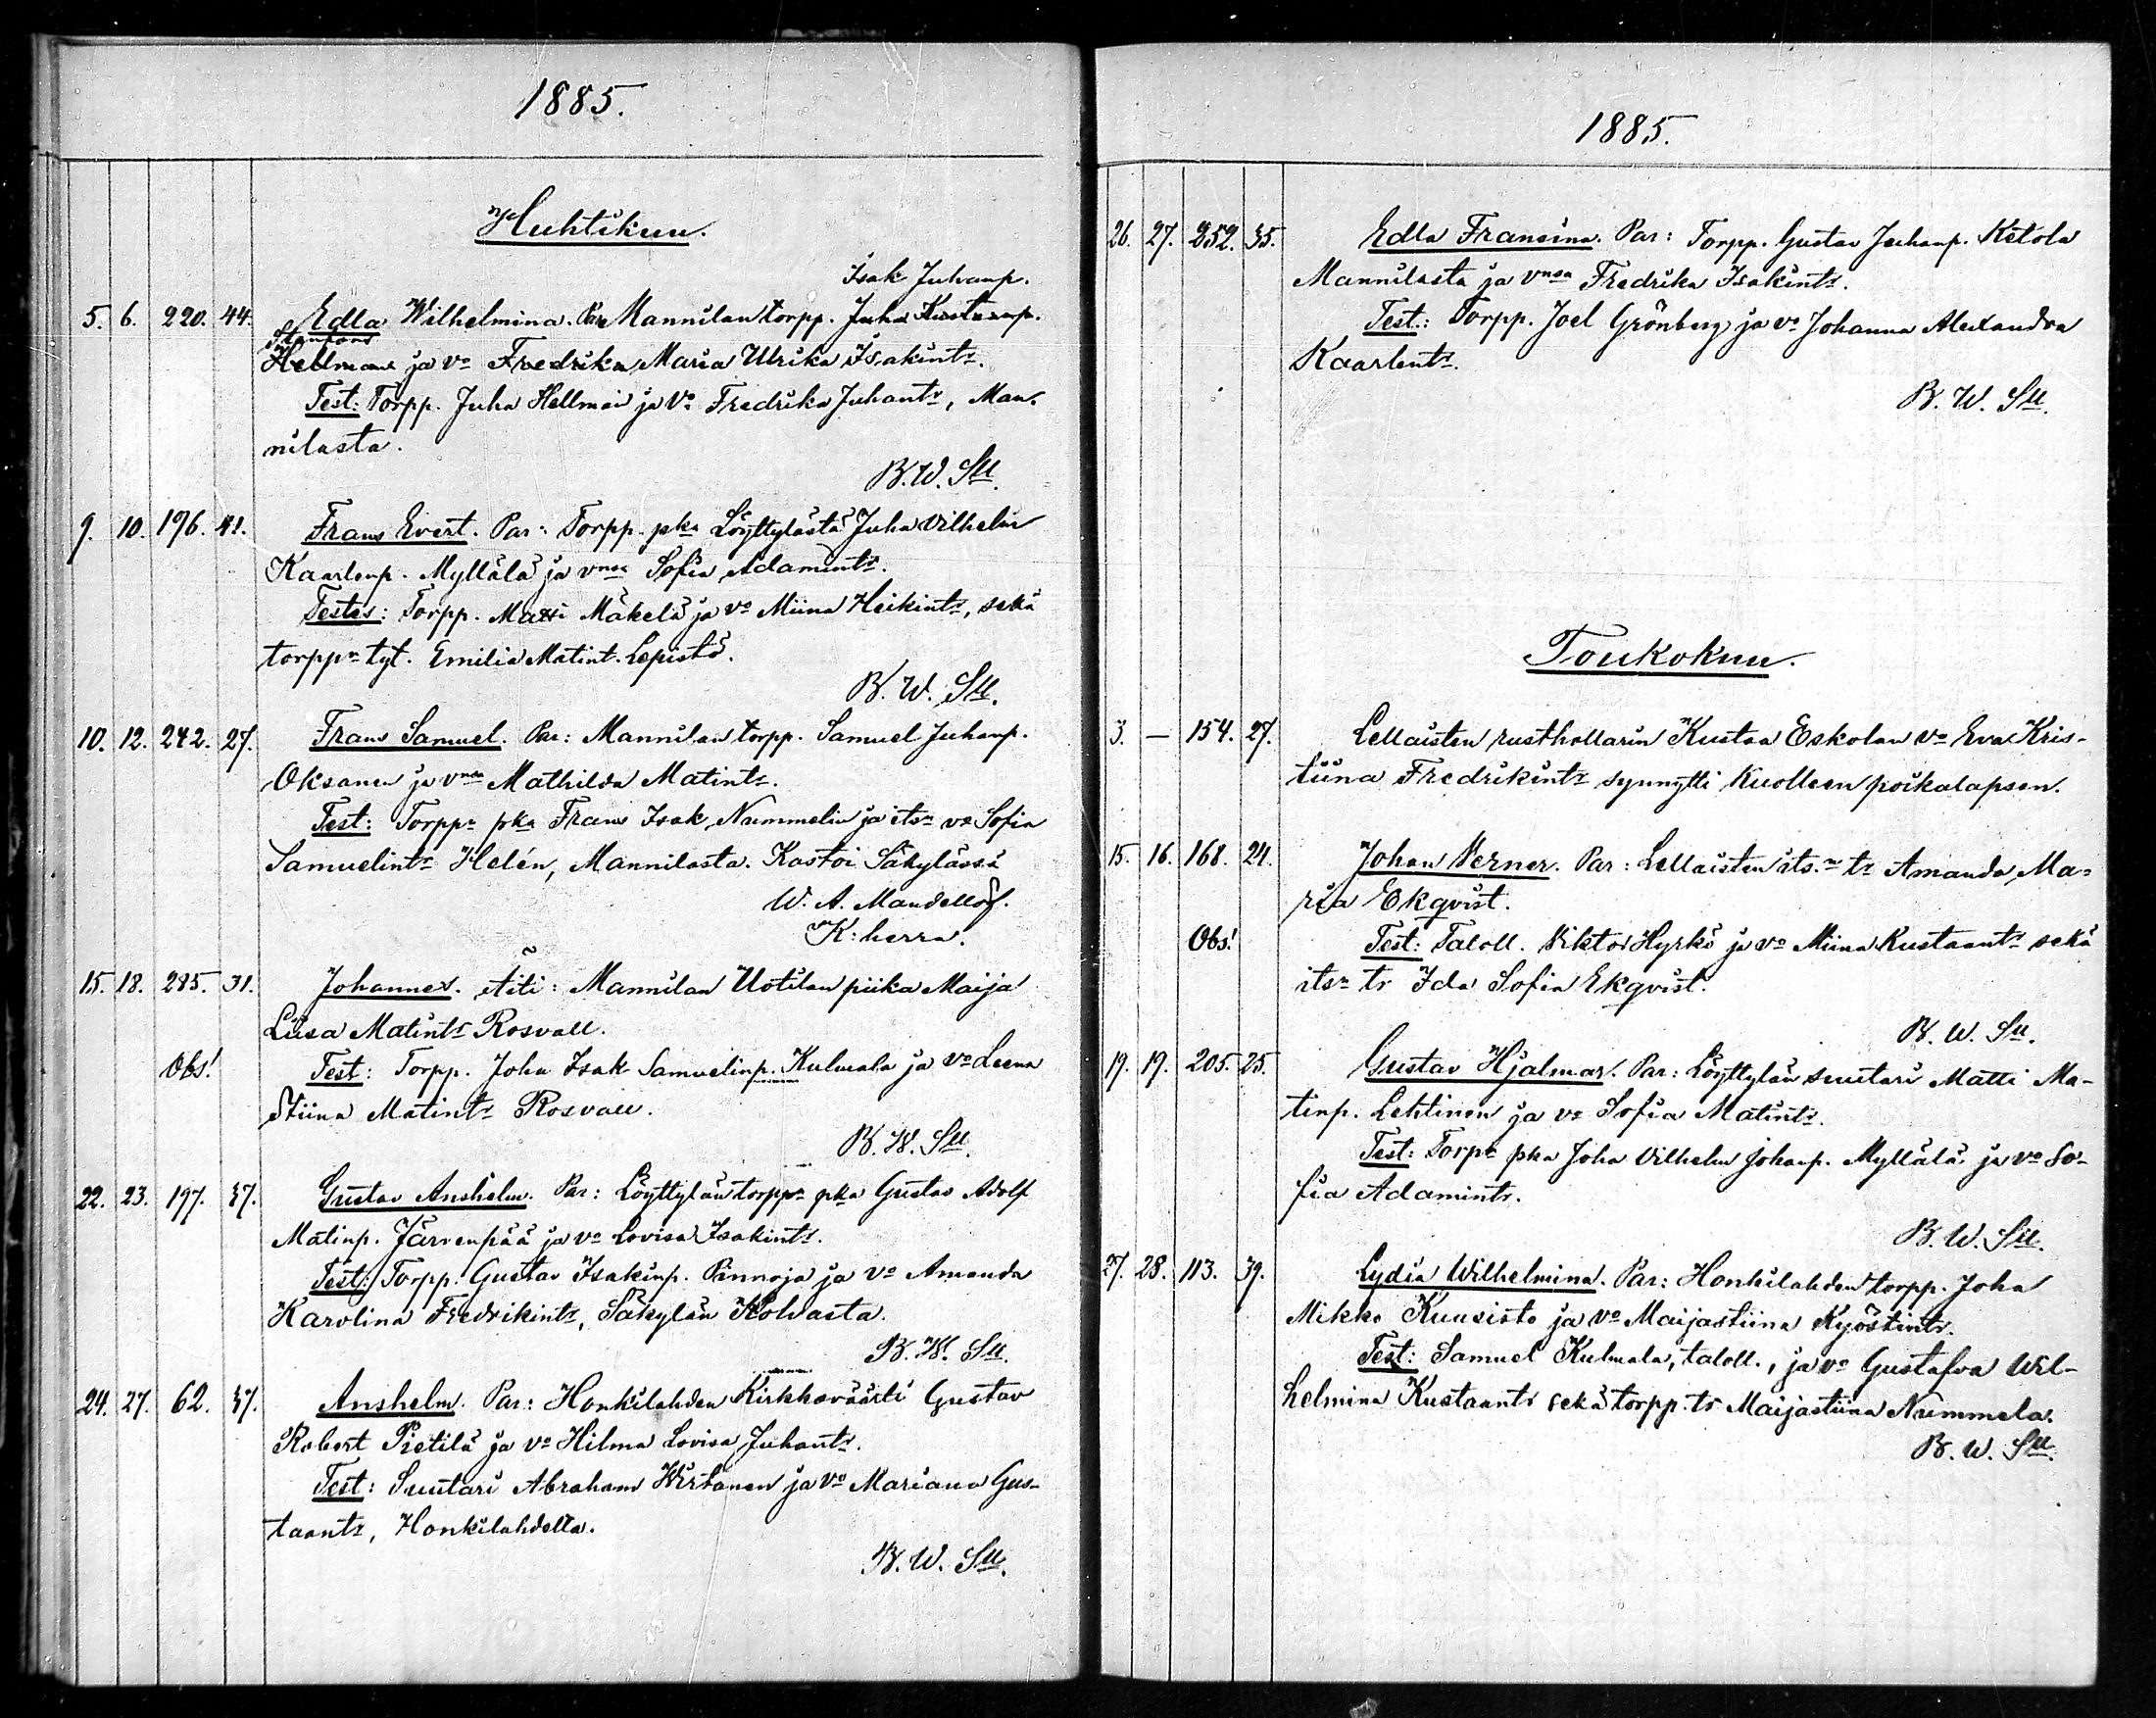 1885.
Huhtikuu.
Isak Juhanp.
5. 6. 220. 44. Edla Wilhelmina. Par. Mannilan torpp. Juha Kustaanp.
Hellman ja vo Fredrika Maria Ulrika Isakintr.
Test: Torpp. Juha Hellman ja Vo Fredrika Juhantr, Man-
nilasta.
B. W. Sll.
9. 10. 196. 41. Frans Evert. Par: Torpp. pka Löyttylästä Juha Vilhelm
Kaarlonp. Myllälä ja vnsa Sofia Adamintr.
Testes: Torpp. Matti Mäkelä ja vo Miina Heikintr, sekä
torppn tyt. Emilia Matint. Lepistö.
B. W. Sll.
10. 12. 242. 27. Frans Samuel. Par: Mannilan torpp. Samuel Juhanp.
Oksanen ja vnsa Mathilda Matintr.
Test: Torppn pka Frans Isak Nummelin ja itsn vo Sofia
Samuelintr Helén, Mannilasta. Kastoi Säkylässä
W. A. Mandellöf.
K:herra.
15. 18. 285. 31. Johannes. Äiti: Mannilan Uotilan piika Maija
Liisa Matintr Rosvall.
Obs! Test: Torpp. Joha Isak Samuelinp. Kulmala ja vo Leena
Stiina Matintr Rosvall.
B. W. Sll.
22. 23. 197. 37. Gustav Anshelm. Par: Löyttylän torppn pka Gustav Adolf
Matinp. Järvenpää ja vo Lovisa Isakintr.
Test: Torpp. Gustav Isakinp. Pannoja ja vo Amanda
Karolina Fredrikintr, Säkylän Kolvasta.
B. W. Sll.
24. 27. 62. 37. Anshelm. Par: Honkilahden Kirkkoväärti Gustav
Robert Pietilä ja vo Hilma Lovisa Juhantr.
Test: Suutari Abraham Wirtanen ja vo Mariana Gus-
taantr, Honkilahdelta.
B. W. Sll.
1885.
26. 27. 252. 35. Edla Fransina. Par: Torpp. Gustav Juhanp. Ketola
Mannilasta ja vnsa Fredrika Isakintr.
Test.: Torpp. Joel Grönberg ja vo Johanna Alexandra
Kaarlentr.
B. W. Sll.
Toukokuu.
3. — 154. 27. Lellaisten rusthollarin Kustaa Eskolan vo Eva Kris-
tiina Fredrikintr synnytti kuolleen poikalapsen.
15. 16. 168. 24. Johan Verner. Par: Lellaisten its.n tr Amanda Ma-
ria Ekqvist.
Obs! Test: Taloll. Viktor Hyrkö ja vo Miina Kustaantr sekä
itsn tr Ida Sofia Ekqvist.
B. W. Sll.
19. 19. 205. 25. Gustav Hjalmar. Par: Löyttylän suutari Matti Ma-
tinp. Lehtinen ja vo Sofia Matintr.
Test: Torpn pka Joha Vilhelm Johanp. Myllälä ja vo So-
fia Adamintr.
B. W. Sll.
27. 28. 113. 39. Lydia Wilhelmina. Par: Honkilahden torpp. Joha
Mikko Kuusisto ja Vo Maijastiina Kyöstintr.
Test: Samuel Kulmala, taloll., ja vo Gustafva Wil-
helmina Kustaantr sekä torpp. tr Maijastiina Nummela.
B. W. Sll.